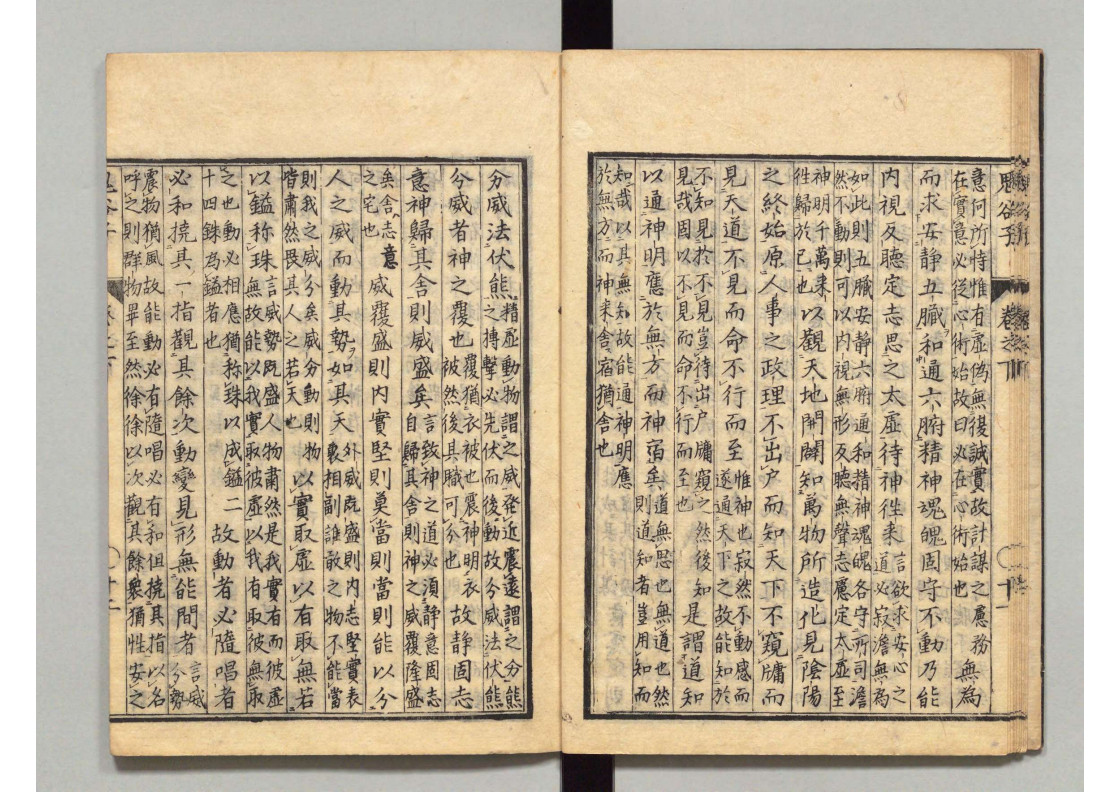 鬼谷子 卷之下 十一
意何所恃惟有虛偽無復誠實故計謀之慮務
在實意必後心術始故曰必在心術始也
無為
而求安靜五臟和通六腑精神魂魄固守不動乃能
內視反聽定志思之太虛待神往来
言欲求安心之
道必寂澹無為
如此則五臟安靜六腑通和精神魂魄各守所司澹
然不動則可以內視無形反聽無聲志慮定太虛至
神明千萬来
往歸於已也
以觀天地開闢知萬物所造化見陰陽
之終始原人事之政理不出戶而知天下不窺牖而
見天道不見而命不行而至
惟神也寂然不動感而
遂通天下之故能知於
不知見於不見豈待出戶牖窺之然後知
見哉固以不見而命不行而至也
是謂道知
以通神明應於無方而神宿矣
道無思也無道也然
則道知者豈用知而
知哉以其無知故能通神明應
於無方而神来舍宿猶舍也
分威法伏熊
精虛動物謂之威發近震遠謂之分熊
之搏擊必先伏而後動故分威法伏熊
分威者神之覆也
覆猶衣被也震神明衣
被然後其職可分也
故靜固志
意神歸其舍則威盛矣
言致神之道必須靜意固志
自歸其舍則神之威覆隆盛
矣舍志
之宅也
意
威覆盛則內實堅則莫當則當則能以分
人之威而動其勢如其天
外威既盛則內志堅實表
裏相副誰敢之物不能當
則我之威分矣威分動則物
皆肅然畏其人之若天也
以實取虛以有取無若
以鎰称珠
言威勢既盛人物肅然是我實有而彼虛
無故能以我實取彼虛以我有取彼無取
之也動必相應猶称珠以成鎰二
十四銖為鎰者也
故動者必隨唱者
必和撓其一指觀其餘次動變見形無能間者
言威
分勢
震物猶風故能動必有隨唱必有和但撓其指以名
呼之則群物畢至然徐徐以次觀其餘衆猶性安之